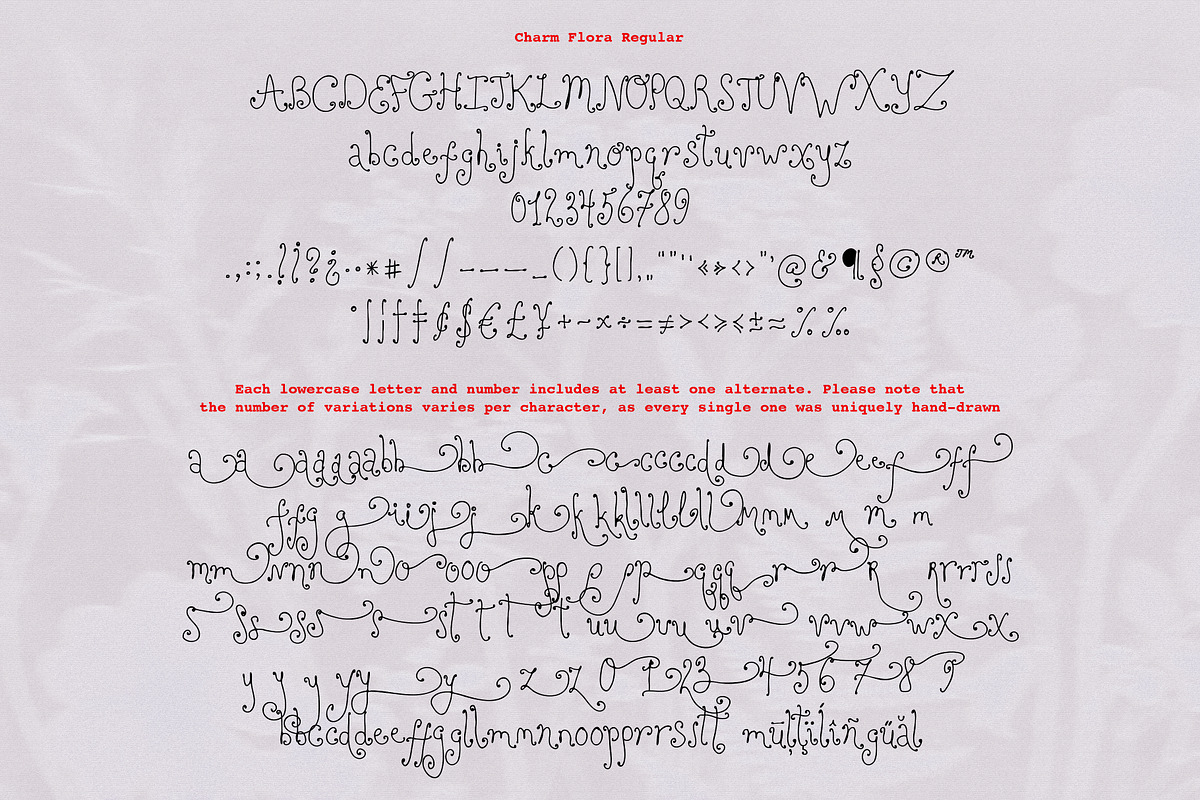 Charm Flora Regular
ABCDEFGHIJKLMNOPQRSTUVWXYZ
abcdefghijklmnopqrstuvwxyz
0123456789
.,:;.!¡?¿··*#//–—_(){}[]‚„“”‘’«»‹›"'@&¶§©®™
°|¦†‡¢$€£¥+~×÷=≠><≥≤±≈%‰
Each lowercase letter and number includes at least one alternate. Please note that
the number of variations varies per character, as every single one was uniquely hand-drawn
a a aaaaabb bb c c ccccdd d e eef ff
ffg g iijj k k kklllllllmmm m m m
mm nnn n o ooo pp p pp qqq r r R Rrrrss
s ss ss s st t t t uu uu uv vvw wx x
y y y yy y z z 0 123 4567 8 9
bbccddeeffggllmmnnooppr­rsstt mūļţïlíîñgűăl